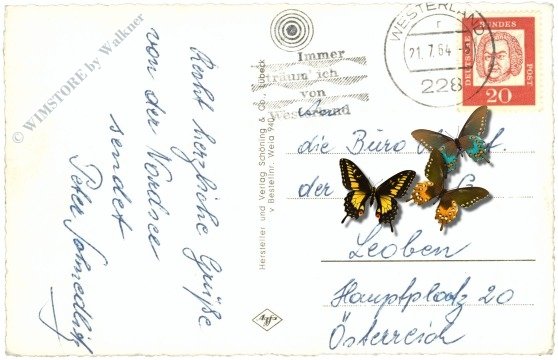 © WIMSTORE by Walkner
Recht herzliche Grüße
von der Nordsee
sendet
Peter
Hersteller und Verlag Schöning & Co., Lübeck
Bestellnr. Wela 940
Immer
träum' ich
von
Westerland
WESTERLAND
21.7.64
228
DEUTSCHE BUNDESPOST
20
An
die Büro
der
Leoben
Hauptplatz 20
Österreich